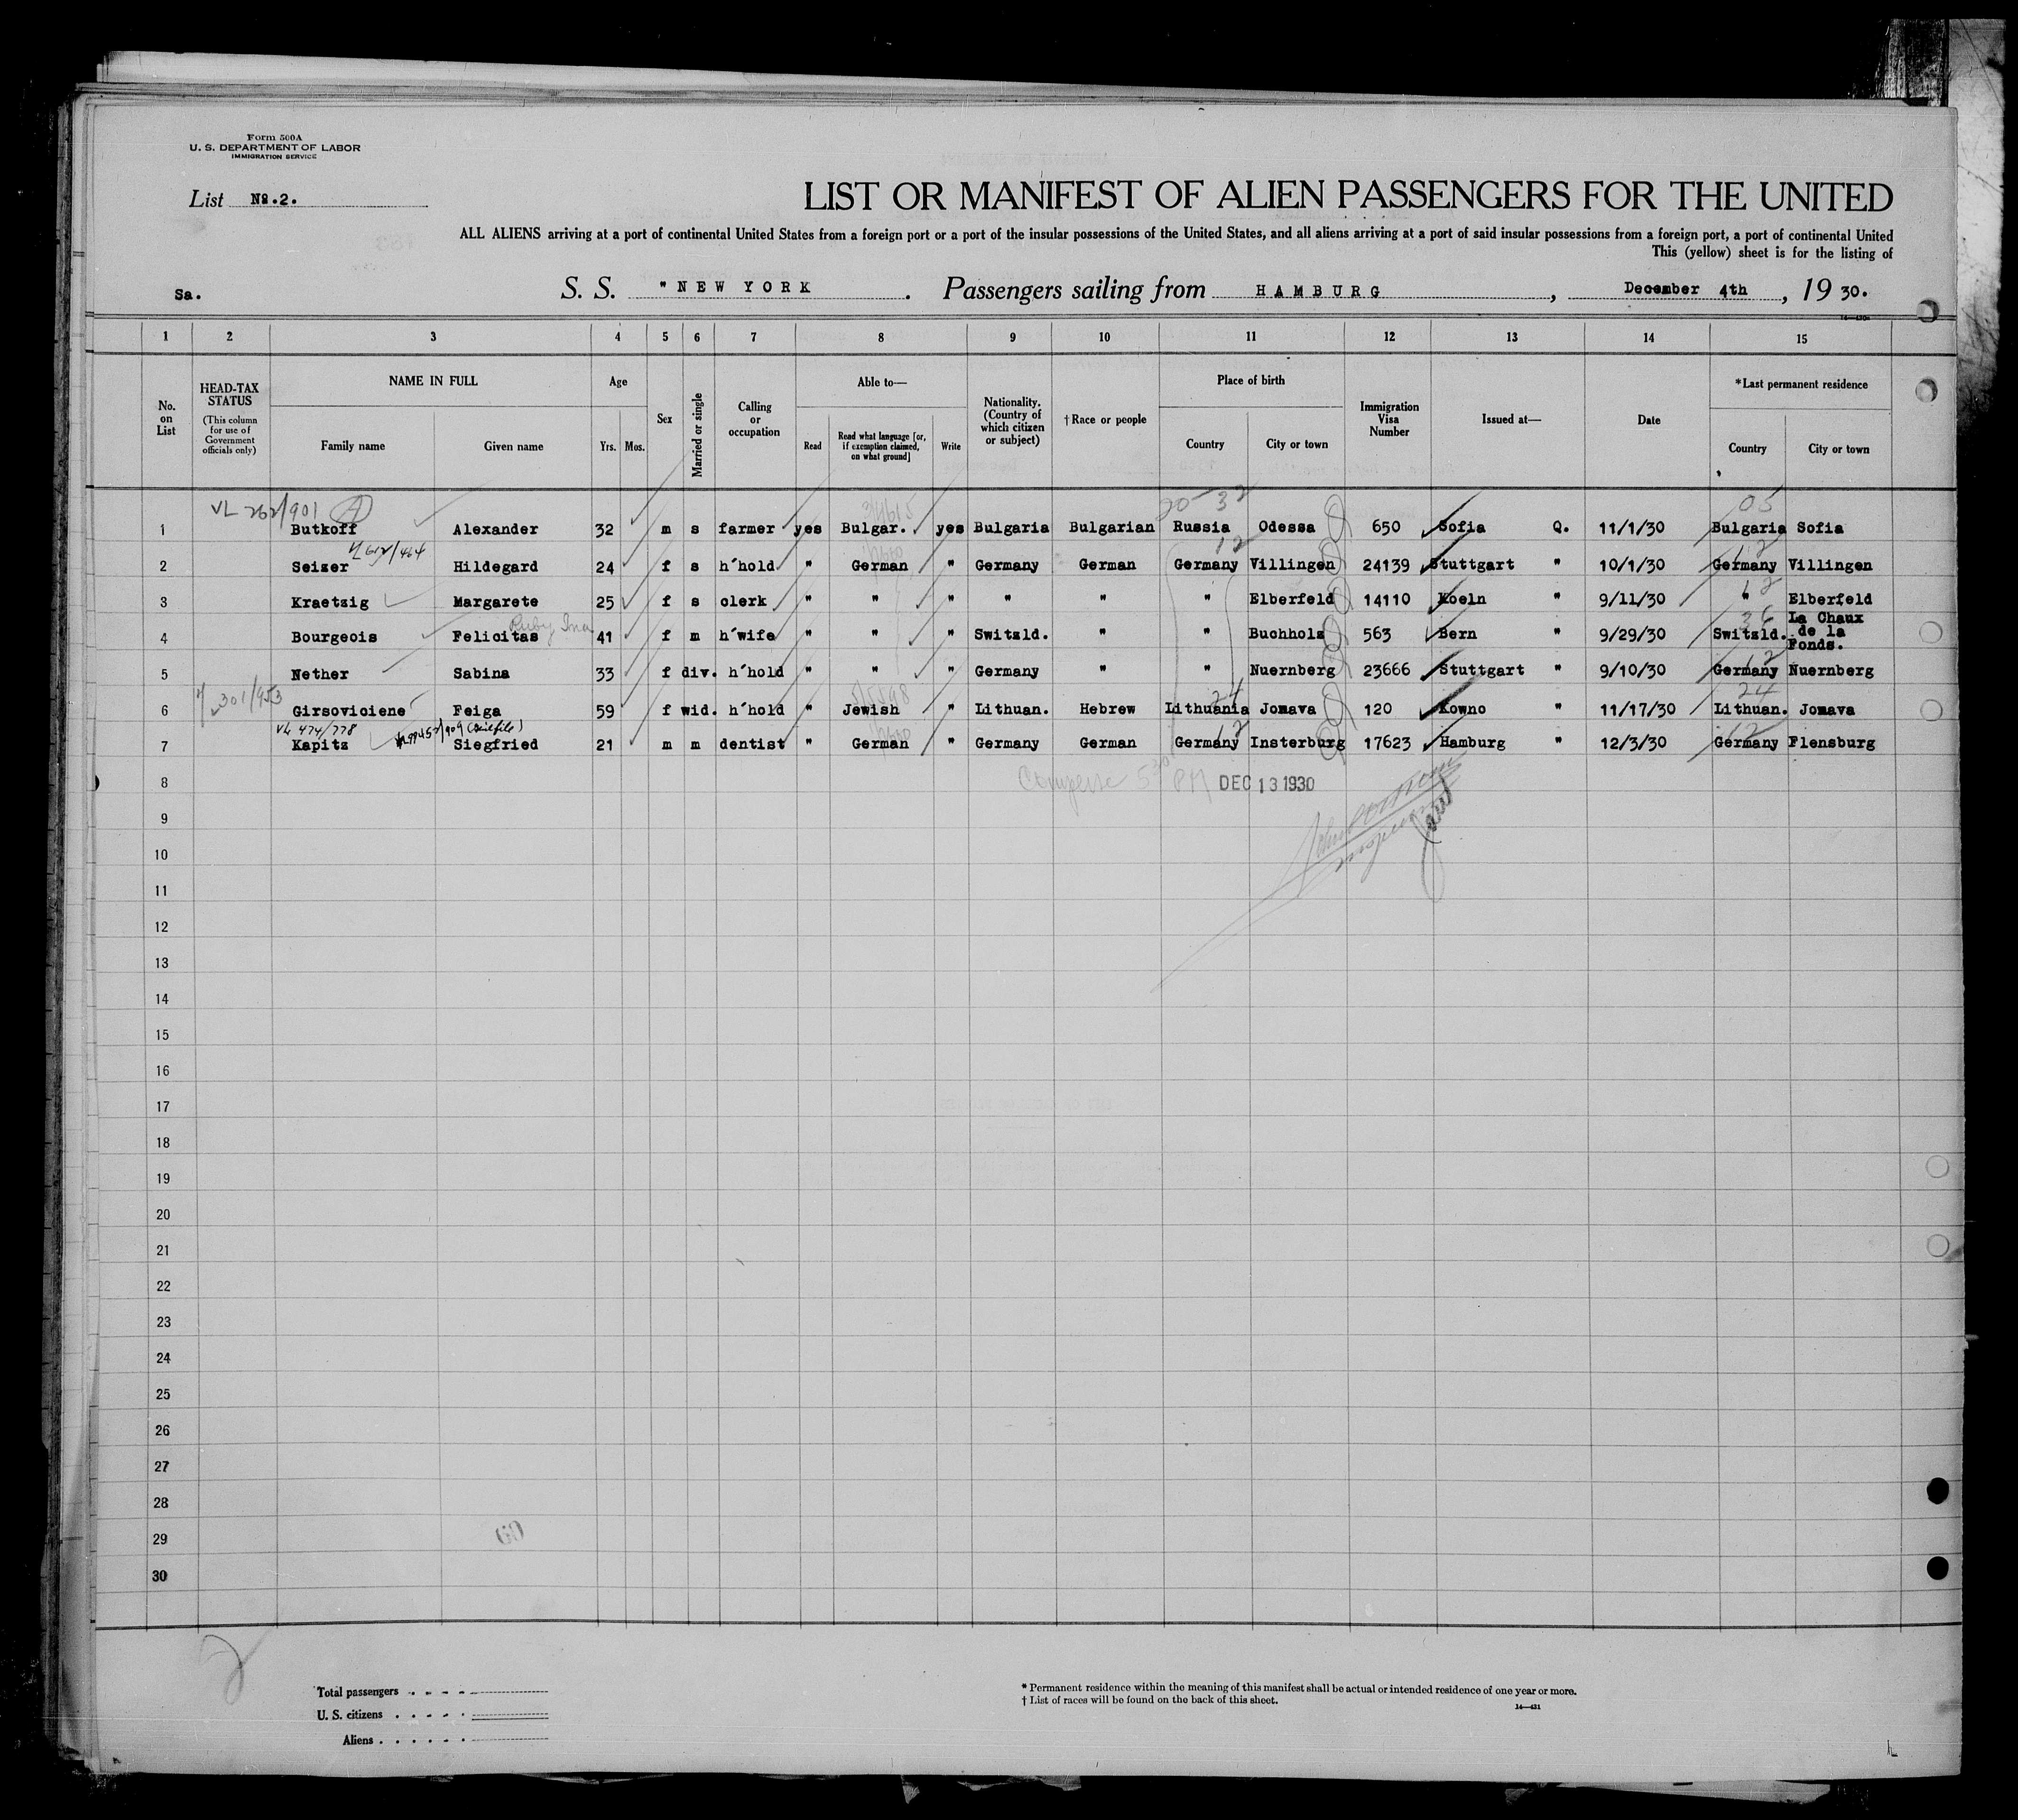 Form 500A
U. S. DEPARTMENT OF LABOR
IMMIGRATION SERVICE
List No. 2.
LIST OR MANIFEST OF ALIEN PASSENGERS FOR THE UNITED
ALL ALIENS arriving at a port of continental United States from a foreign port or a port of the insular possessions of the United States, and all aliens arriving at a port of said insular possessions from a foreign port, a port of continental United
This (yellow) sheet is for the listing of
Sa. S. S. "NEW YORK . Passengers sailing from HAMBURG , December 4th , 1930.
1 2 3 4 5 6 7 8 9 10 11 12 13 14 15
No. on List HEAD-TAX STATUS (This column for use of Government officials only) NAME IN FULL Family name Given name Age Yrs. Mos. Sex Married or single Calling or occupation Able to— Read Read what language [or, if exemption claimed, on what ground] Write Nationality. (Country of which citizen or subject) † Race or people Place of birth Country City or town Immigration Visa Number Issued at— Date *Last permanent residence Country City or town
VL 262/901 A 20 32 05
1 Butkoff Alexander 32 m s farmer yes Bulgar. yes Bulgaria Bulgarian Russia Odessa 650 Sofia Q. 11/1/30 Bulgaria Sofia
12 12
2 Seizer Hildegard 24 f s h'hold " German " Germany German Germany Villingen 24139 Stuttgart " 10/1/30 Germany Villingen
12
3 Kraetzig Margarete 25 f s clerk " " " " " " Elberfeld 14110 Koeln " 9/11/30 " Elberfeld
Ruby Ina
4 Bourgeois Felicitas 41 f m h'wife " " " Switzld. " " Buchholz 563 Bern " 9/29/30 Switzld. La Chaux de la Fonds.
12
5 Nether Sabina 33 f div. h'hold " " " Germany " " Nuernberg 23666 Stuttgart " 9/10/30 Germany Nuernberg
301/953 24 24
6 Girsovioiene Feiga 59 f wid. h'hold " Jewish " Lithuan. Hebrew Lithuania Jomava 120 Kowno " 11/17/30 Lithuan. Jomava
VL 474/778 12 12
7 Kapitz Siegfried 21 m m dentist " German " Germany German Germany Insterburg 17623 Hamburg " 12/3/30 Germany Flensburg
8 5 30 PM DEC 13 1930
9
10
11
12
13
14
15
16
17
18
19
20
21
22
23
24
25
26
27
28
29
30
2
Total passengers
U. S. citizens
Aliens
* Permanent residence within the meaning of this manifest shall be actual or intended residence of one year or more.
† List of races will be found on the back of this sheet.
14—431